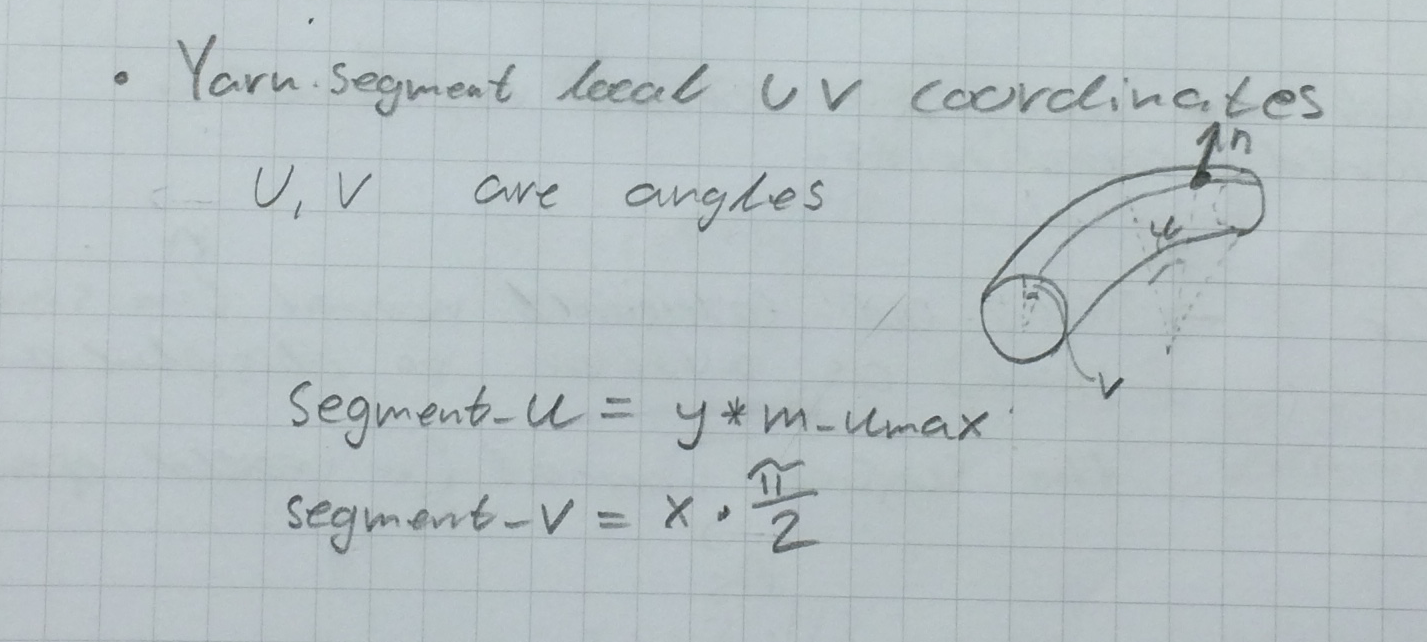 • Yarn segment local UV coordinates
n
U, V are angles
u
V
segment_u = y * m_umax
segment_v = x · π/2